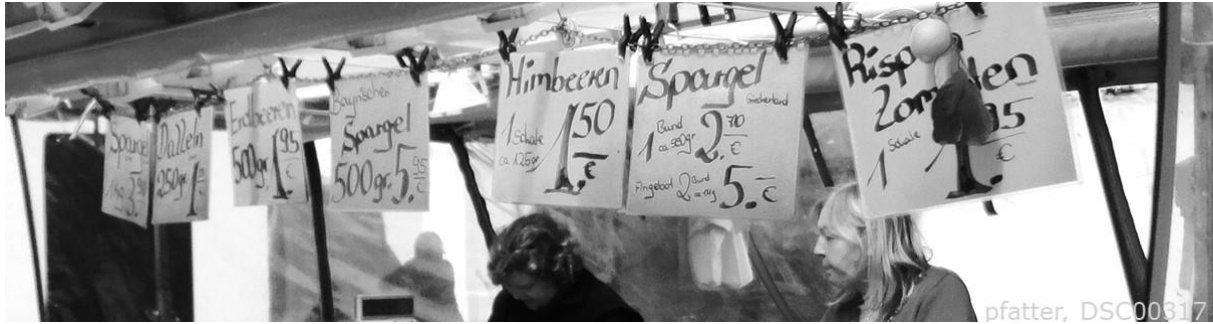 Spargel
1kg 3.
Datteln
250gr. 1.
Erdbeeren
500gr. 1.95
€
Bayrischer
Spargel
500gr. 5.95
€
Himbeeren
1 Schale
ca 125gr.
1.50
€
Spargel
Griechenland
1 Bund
ca 500gr.
2.70
€
Angebot 2 Bund
ca 1kg
5.-
€
Rispen-
Tomaten
1 Schale
1.95
€
pfatter, DSC00317